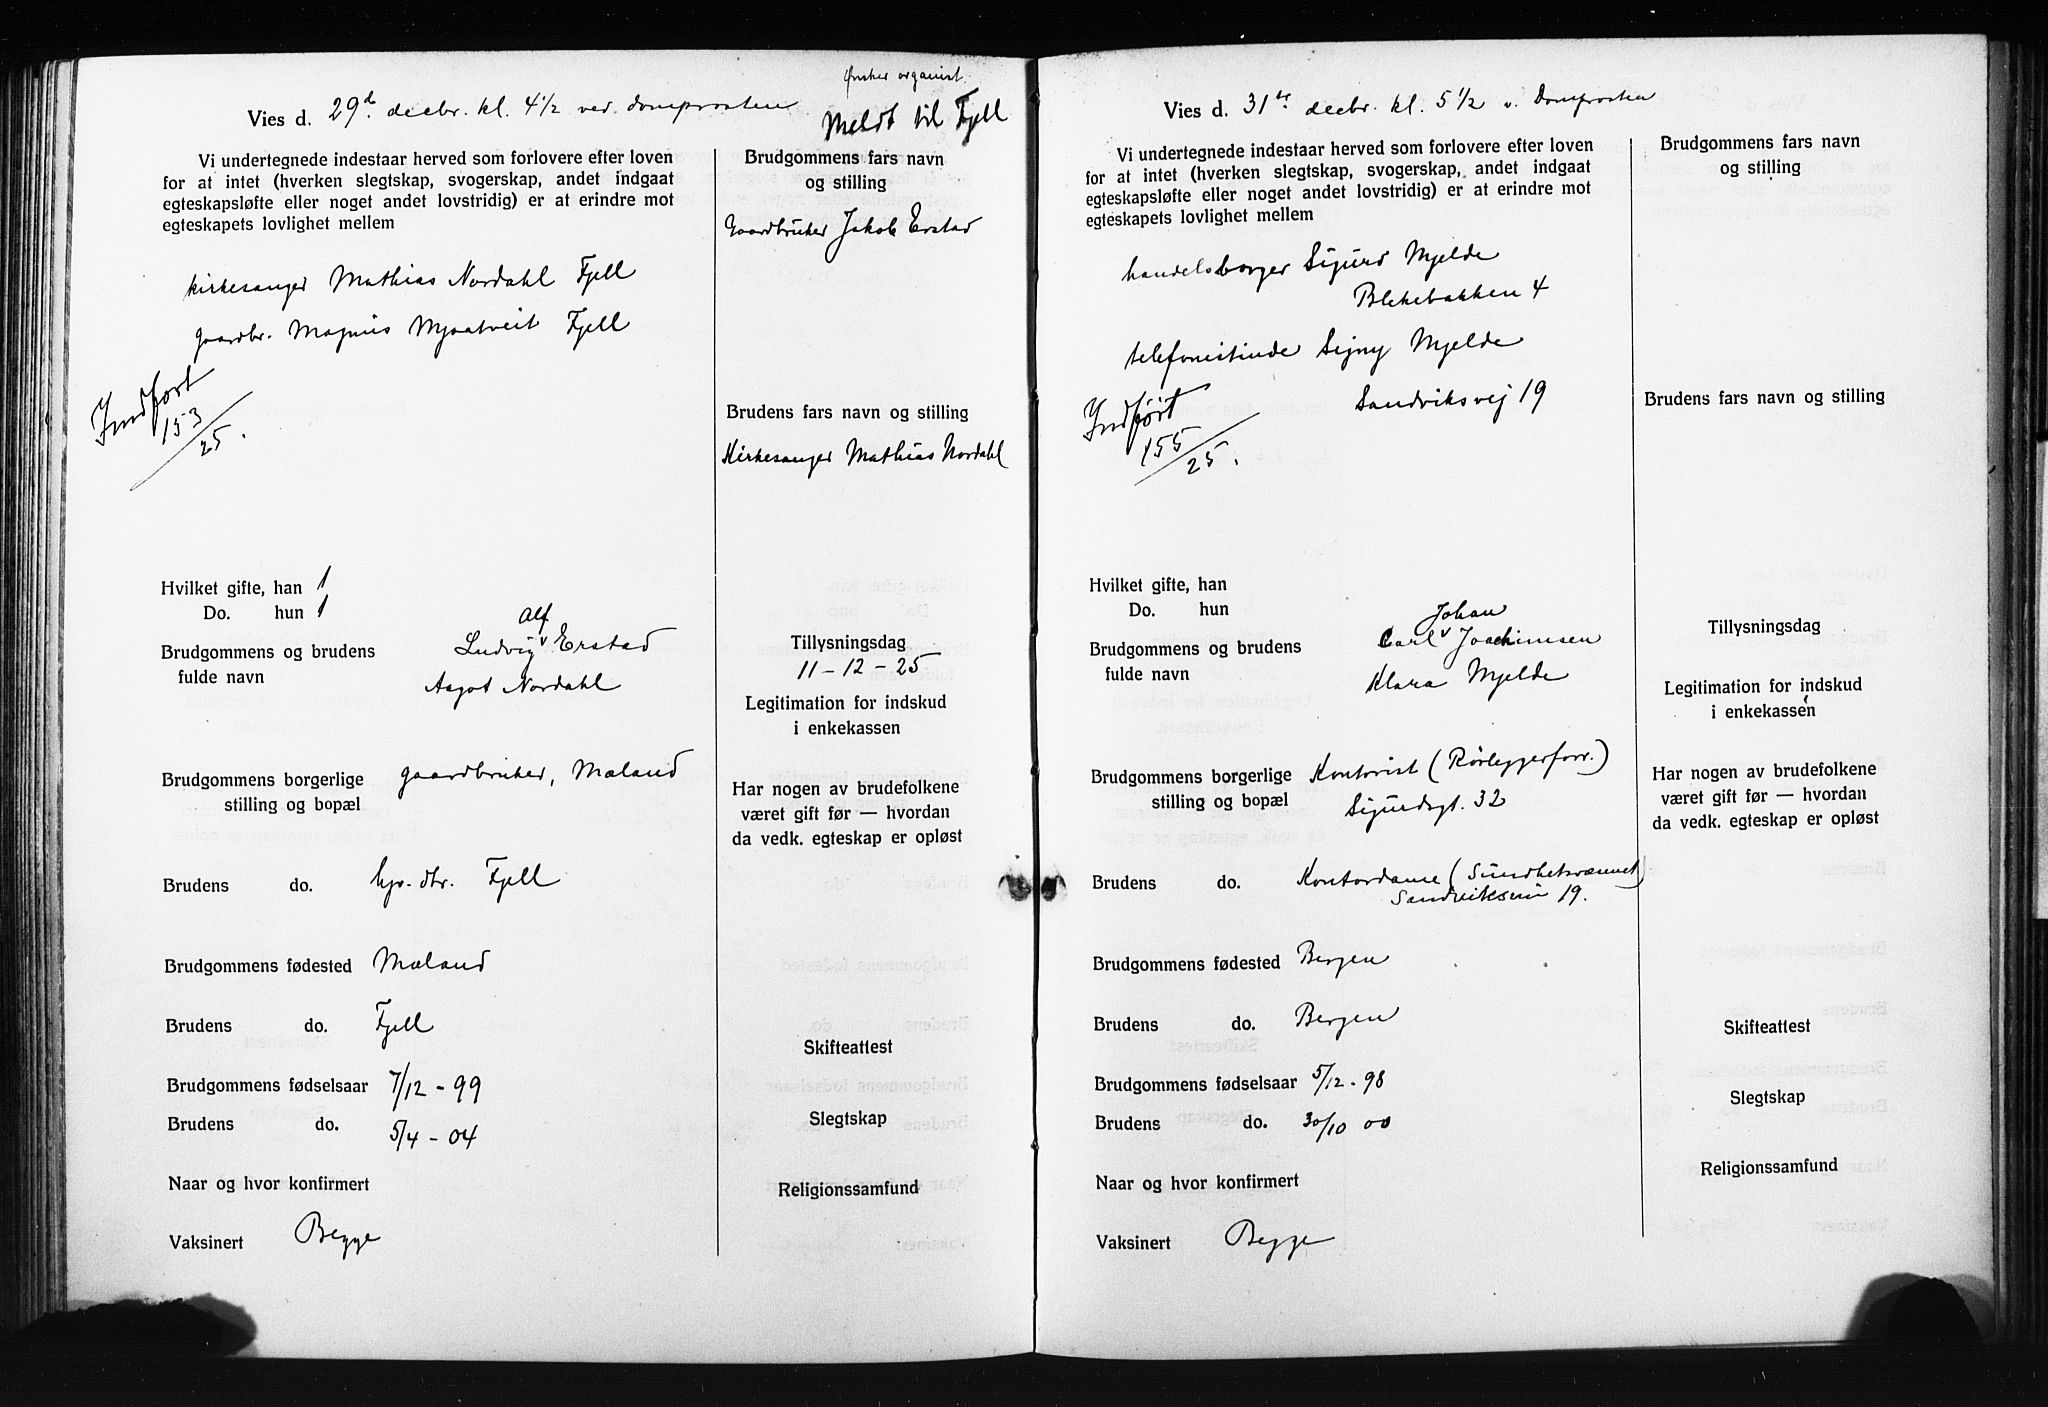 Ønsker organist.
Vies d. 29d. decbr. kl. 4½ ved domprosten
Meldt til Fjell
Vi undertegnede indestaar herved som forlovere efter loven
for at intet (hverken slegtskap, svogerskap, andet indgaat
egteskapsløfte eller noget andet lovstridig) er at erindre mot
egteskapets lovlighet mellem
Brudgommens fars navn
og stilling
Gaardbruker Jakob Erstad
kirkesanger Mathias Nordahl Fjell
gaardbr. Magnus Mjaatveit Fjell
Indført
153
/25.
Brudens fars navn og stilling
Kirkesanger Mathias Nordahl
Hvilket gifte, han 1
Do. hun 1
Alf
Brudgommens og brudens Ludvig v Erstad
fulde navn Aagot Nordahl
Tillysningsdag
11-12-25
Legitimation for indskud
i enkekassen
Brudgommens borgerlige gaardbruker, Mæland
stilling og bopæl
Har nogen av brudefolkene
været gift før — hvordan
da vedk. egteskap er opløst
Brudens do. hjv. dtr. Fjell
Brudgommens fødested Mæland
Brudens do. Fjell
Skifteattest
Brudgommens fødselsaar 7/12-99
Brudens do. 5/4-04
Slegtskap
Naar og hvor konfirmert
Religionssamfund
Vaksinert Begge
Vies d. 31te decbr. kl. 5½ v. Domprosten
Vi undertegnede indestaar herved som forlovere efter loven
for at intet (hverken slegtskap, svogerskap, andet indgaat
egteskapsløfte eller noget andet lovstridig) er at erindre mot
egteskapets lovlighet mellem
Brudgommens fars navn
og stilling
handelsborger Sigurd Mjelde
Blekebakken 4
telefonistinde Signy Mjelde
Sandviksvej 19
Indført
155
/25.
Brudens fars navn og stilling
Hvilket gifte, han
Do. hun
Johan
Brudgommens og brudens Carl v Joachimsen
fulde navn Klara Mjelde
Tillysningsdag
Legitimation for indskud
i enkekassen
Brudgommens borgerlige Kontorist (Rørleggerforr.)
stilling og bopæl Sigurdsgt. 32
Har nogen av brudefolkene
været gift før — hvordan
da vedk. egteskap er opløst
Brudens do. Kontordame (Sundhetsvæsenet)
Sandviksvei 19.
Brudgommens fødested Bergen
Brudens do. Bergen
Skifteattest
Brudgommens fødselsaar 5/12-98
Brudens do. 30/10 00
Slegtskap
Naar og hvor konfirmert
Religionssamfund
Vaksinert Begge